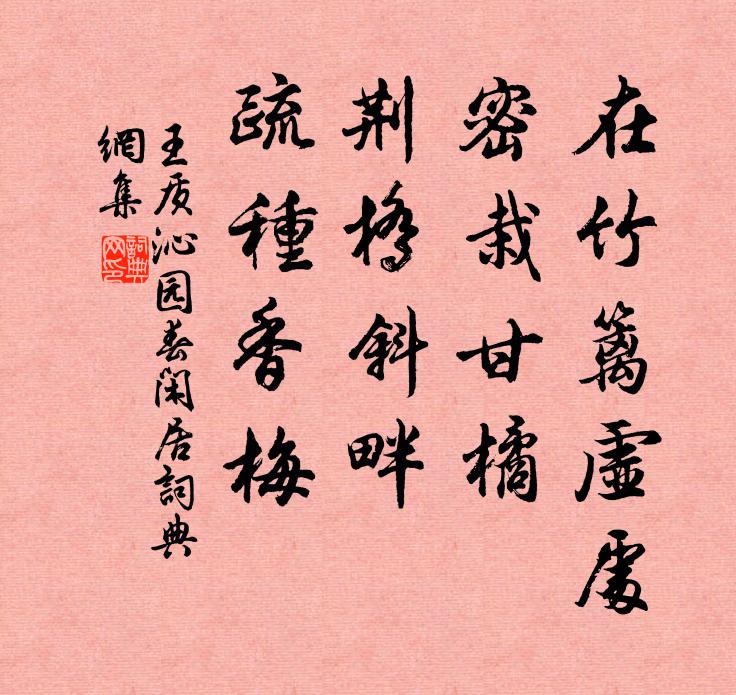 在竹篱虚處
密栽甘橘
荆橋斜畔
疏種香梅
王质沁园春闲居詞典
網集
詞典网印